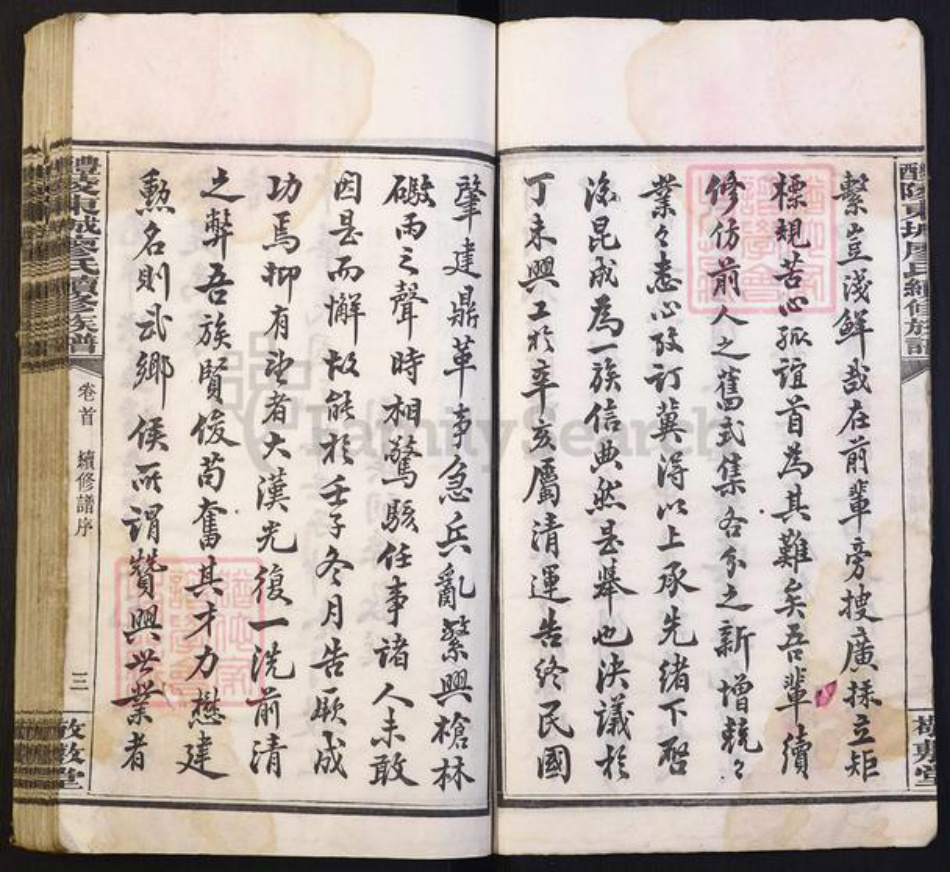 繫豈淺鮮哉在前輩旁搜廣採立矩
標規苦心孤誼首為其難矣吾輩續
修仿前人之舊式集各分之新增兢々
業々悉心攷訂冀得以上承先緒下啓
後昆成為一族信典然是舉也決議於
丁未興工於辛亥屬清運告終民國
肇建鼎革事急兵亂繁興槍林
礮雨之聲時相驚駭任事諸人未敢
因是而懈故能於壬子冬月告厥成
功焉抑有望者大漢光復一洗前清
之弊吾族賢俊苟奮其才力懋建
勲名則武鄉侯所謂贊興世業者
醴陵東城廖氏續修族譜
卷首 續修譜序
三
FamilySearch